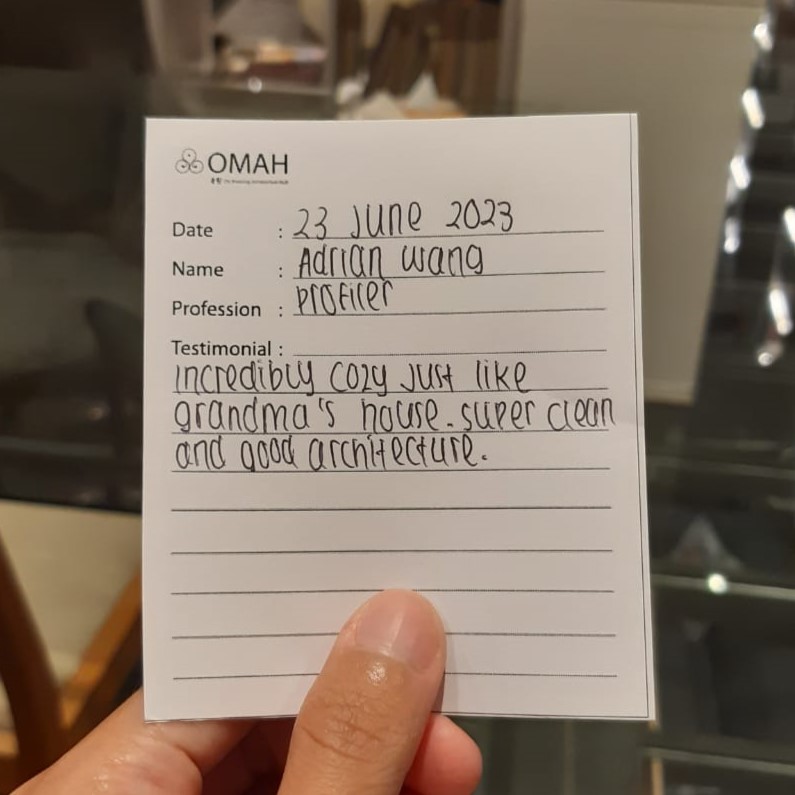 OMAH
Date : 23 June 2023
Name : Adrian wang
Profession : profiler
Testimonial :
incredibly cozy just like
grandma's house. super clean
and good architecture.